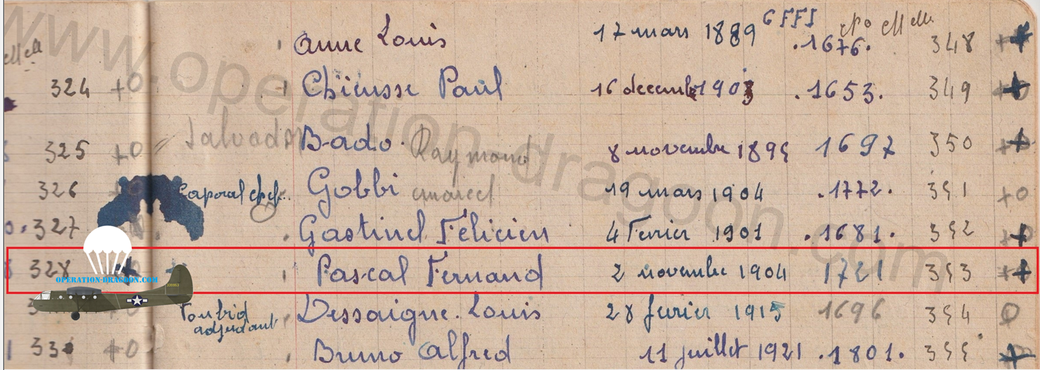 G FFI
Anne Louis 17 mars 1889 .1676. 348 ++
324 +0 Chieusse Paul 16 decembre 1903 .1653. 349 +0
325 +0 Salvador Bado Raymond 8 novembre 1895 1697 350 +
326 Caporal chef. Gobbi marcel 19 mars 1904 .1772. 351 +0
327 Gastinel Félicien 4 Fevrier 1901 .1681. 352 +
328 Pascal Fernand 2 novembre 1904 1721 353 ++
OPERATION-DRAGOON.COM
adjudant Dessaigne Louis 28 fevrier 1915 1696 354 0
33 +0 Bruno Alfred 11 juillet 1921 .1801. 355 +
www.operation-dragoon.com